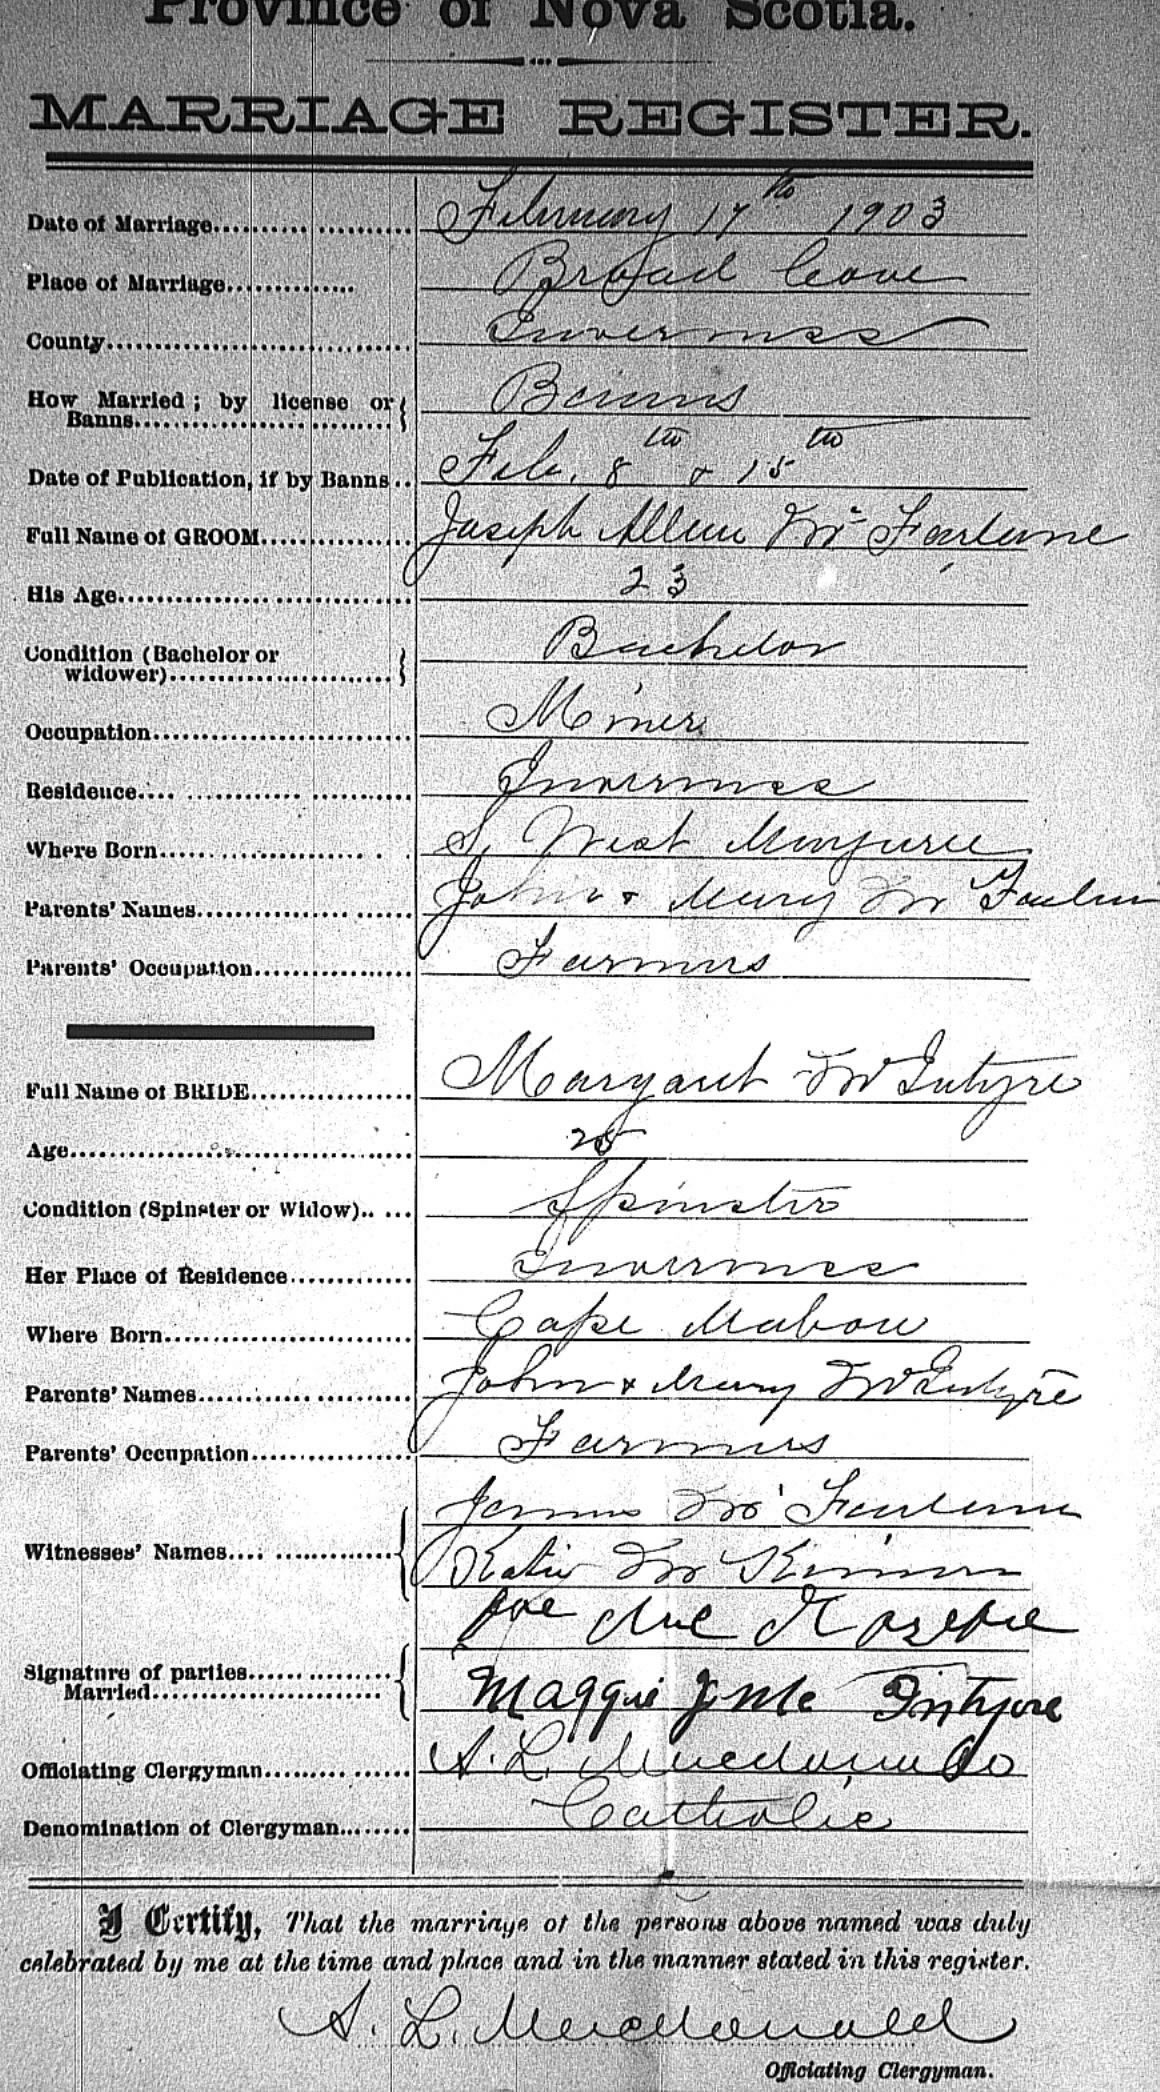 Province of Nova Scotia.
MARRIAGE REGISTER.
Date of Marriage February 17th 1903
Place of Marriage Broad Cove
County Inverness
How Married; by license or Banns Banns
Date of Publication, if by Banns Feb. 8th & 15th
Full Name of GROOM Joseph Allen Mc Farlane
His Age 23
Condition (Bachelor or widower) Bachelor
Occupation Miner
Residence Inverness
Where Born S. West Margaree
Parents' Names John & Mary Mc
Parents' Occupation Farmers
Full Name of BRIDE Margaret McIntyre
Age 25
Condition (Spinster or Widow) Spinster
Her Place of Residence Inverness
Where Born Cape Mabou
Parents' Names John & Mary McIntyre
Parents' Occupation Farmers
Witnesses' Names James Mc Farlane
Katie Mc Kinnon
Signature of parties Married Joe
Maggie J Mc Intyre
Officiating Clergyman A. L. MacDonald
Denomination of Clergyman Catholic
I Certify, That the marriage of the persons above named was duly
celebrated by me at the time and place and in the manner stated in this register.
A. L. MacDonald
Officiating Clergyman.